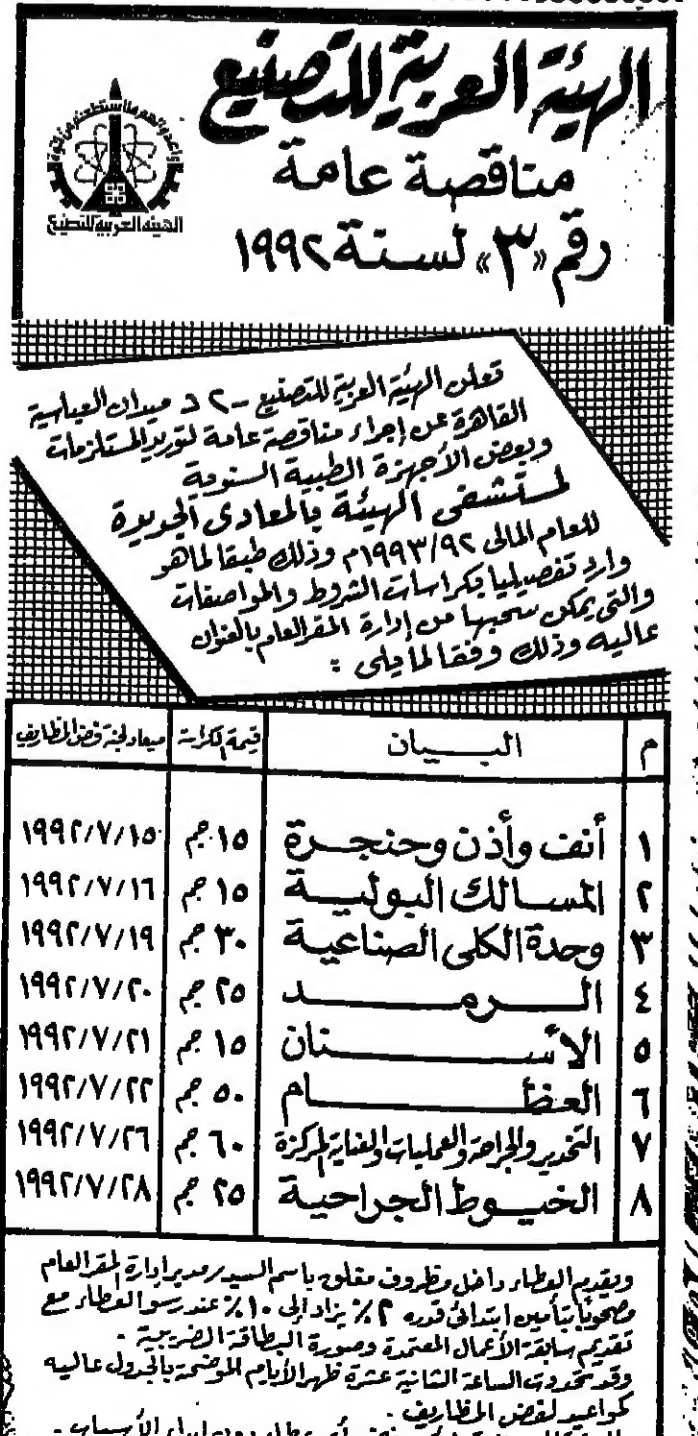 الهيئة العربية للتصنيع
مناقصة عامة
رقم «٣» لسنة ١٩٩٢
وأعدوا لهم ما استطعتم من قوة
الهيئة العربية للتصنيع
تعلن الهيئة العربية للتصنيع - ٢ د ميدان العباسية
القاهرة عن إجراء مناقصة عامة لتوريد المستلزمات
وبعض الأجهزة الطبية السنوية
لمستشفى الهيئة بالمعادى الجديدة
للعام المالى ١٩٩٣/٩٢م وذلك طبقا لما هو
وارد تفصيليا بكراسات الشروط والمواصفات
والتى يمكن سحبها من إدارة المقر العام بالعنوان
عاليه وذلك وفقا لما يلى :
م البيان قيمة الكراسة ميعاد لجنة فض المظاريف
١ أنف وأذن وحنجرة ١٥ جم ١٩٩٢/٧/١٥
٢ المسالك البولية ١٥ جم ١٩٩٢/٧/١٦
٣ وحدة الكلى الصناعية ٣٠ جم ١٩٩٢/٧/١٩
٤ الرمد ٢٥ جم ١٩٩٢/٧/٢٠
٥ الأسنان ١٥ جم ١٩٩٢/٧/٢١
٦ العظام ٥٠ جم ١٩٩٢/٧/٢٢
٧ التخدير والجراحة والعمليات والعناية المركزة ٦٠ جم ١٩٩٢/٧/٢٦
٨ الخيوط الجراحية ٢٥ جم ١٩٩٢/٧/٢٨
ويقدم العطاء داخل مظروف مغلق باسم السيد مدير إدارة المقر العام
مصحوبا بتأمين ابتدائى قدره ٢٪ يزاد إلى ١٠٪ عند رسو العطاء مع
تقديم سابقة الأعمال المعتمدة وصورة البطاقة الضريبية .
وقد تحددت الساعة الثانية عشرة ظهر الأيام الموضحة بالجدول عاليه
كمواعيد لفض المظاريف .
أى عطاء دون إبداء الأسباب .